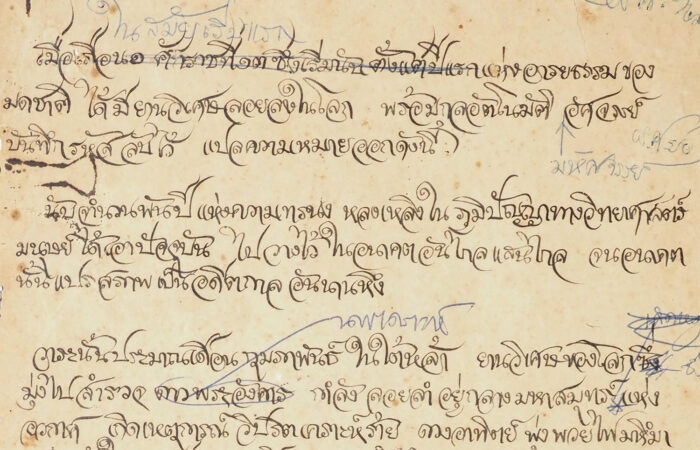 ในสมัยเริ่มแรก
เมื่อเดือน ศักราชที่ ซึ่งเริ่มนับ ตั้งแต่ปีแรกแห่งอารยธรรมของ
มดชาติ ได้มียานวิเศษลอยลงในโลก พร้อมกลอัตโนมัติ อัศจรรย์
บันทึกรหัสลับไว้ แปลความหมายออกดังนี้
มหัศจรรย์
นับจำนวนพันปี แห่งความทรนง หลงเหลิงใน ภูมิปัญญาทางวิทยาศาสตร์
มนุษย์ได้เอาปัจจุบัน ไปวางไว้ในอนาคตอันไกลแสนไกล จนอนาคต
นั้นแปรสภาพเป็นอดีตกาล อันนานหึง
นพเคราะห์
วาระนั้นประมาณเดือน กุมภาพันธ์ ในใต้หล้า ยานวิเศษของโลกซึ่ง
มุ่งไปสำรวจ ดาวพระอังคาร กำลังลอยลำอยู่กลางมหาสมุทรแห่ง
อวกาศ เกิดเหตุการณ์วิปริตเคราะห์ร้าย ดวงอาทิตย์ พุ่งพวยไฟมหึมา